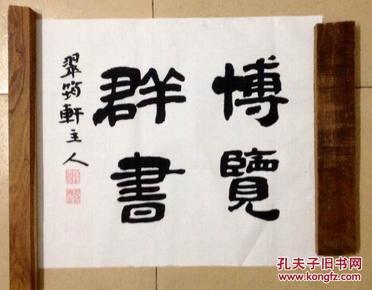 博覽
群書
翠筠軒主人
孔夫子旧书网
www.kongfz.com